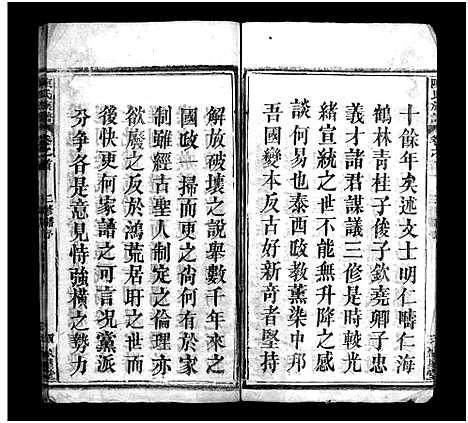 十餘年矣述文士明仁疇仁海
鶴林青桂子俊子欽堯卿子忠
義才諸君謀議三修是時較光
緒宣統之世不能無升降之感
談何易也泰西政教薰染中邦
吾國變本反古好新奇者堅持
解放破壞之說舉數千年來之
國政一掃而更之尚何有於家
制雖經古聖人制定之倫理亦
欲廢之反於鴻荒居盱之世而
後快更何家譜之可言況黨派
分爭各是意見恃強橫之勢力
陳氏族譜
卷之首